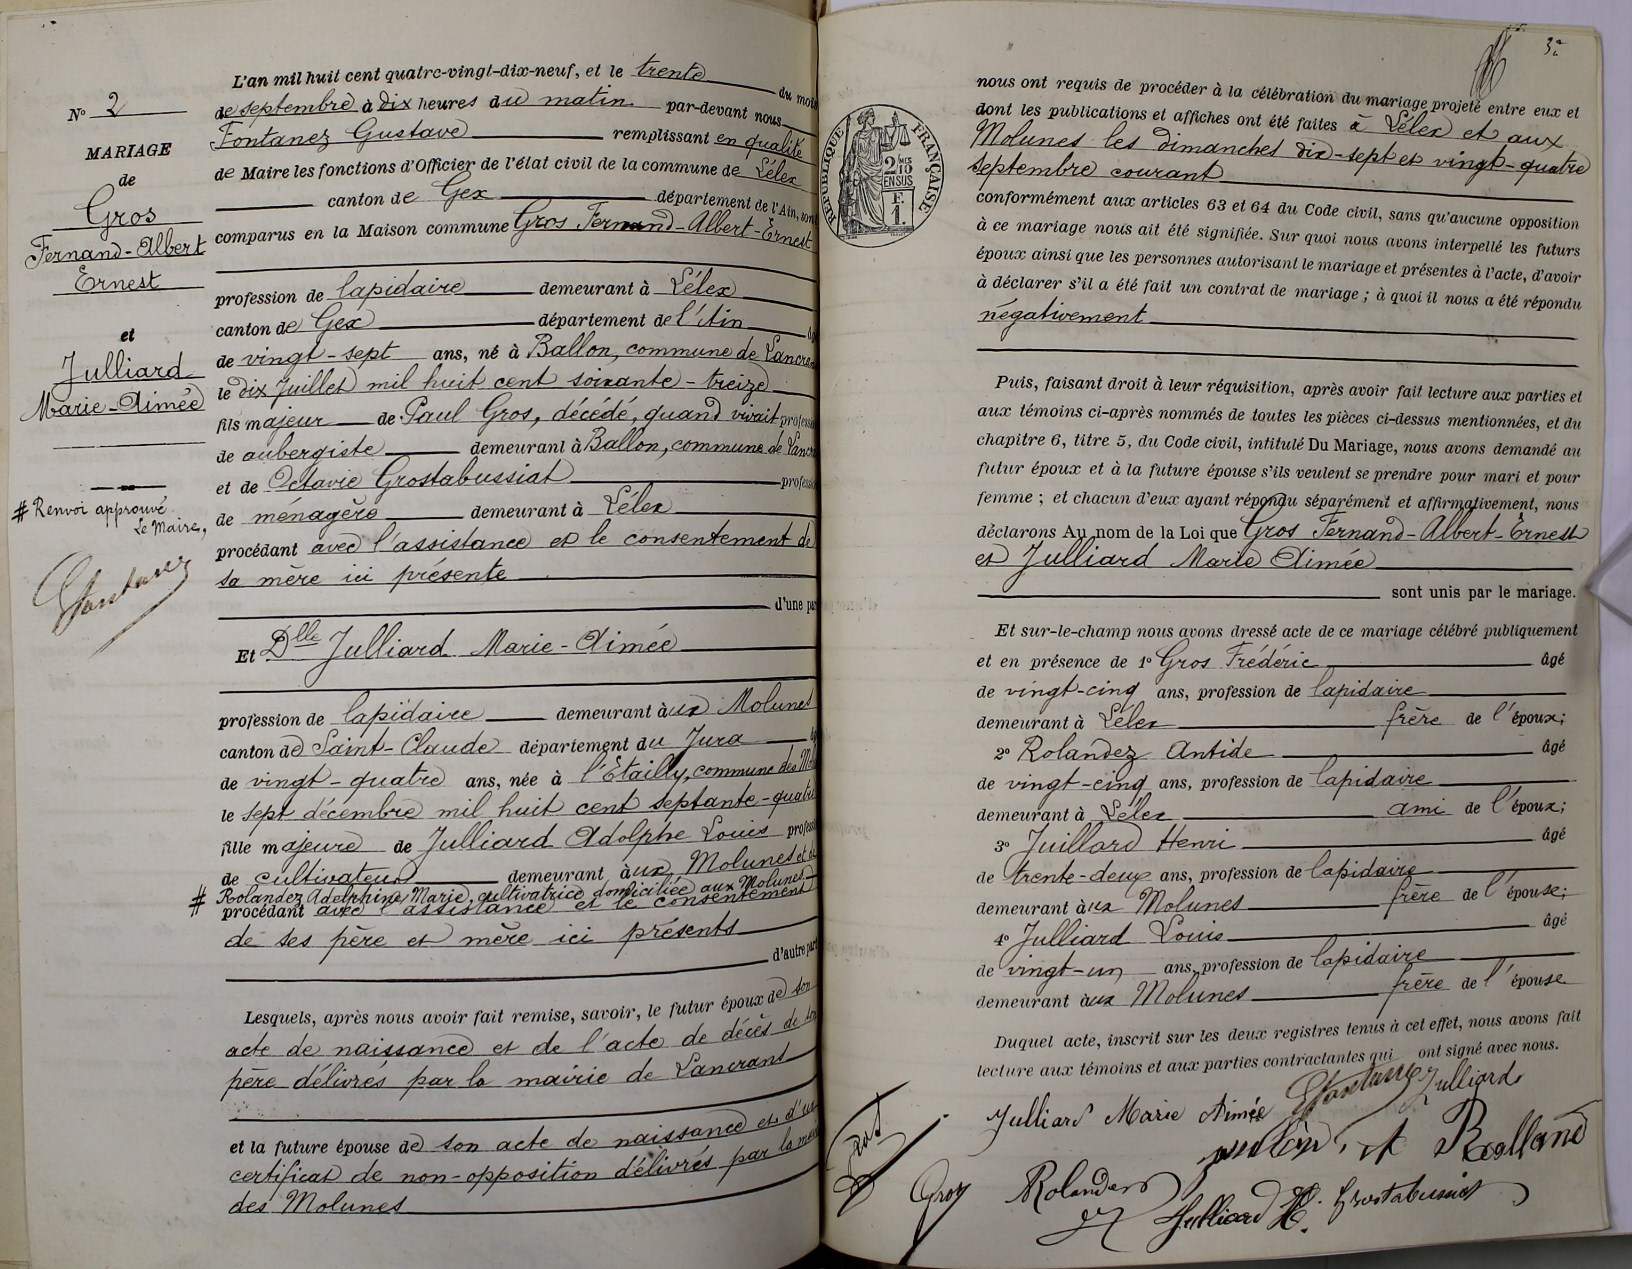 L'an mil huit cent quatre-vingt-dix-neuf, et le trente du mois
de septembre à dix heures du matin par-devant nous
Fontanez Gustave remplissant en qualité
de Maire les fonctions d'Officier de l'état civil de la commune de Lélex
canton de Gex département de l'Ain, sont
comparus en la Maison commune Gros Fernand-Albert-Ernest
profession de lapidaire demeurant à Lélex
canton de Gex département de l'Ain
de vingt-sept ans, né à Ballon, commune de Lancran
le dix Juillet mil huit cent soixante-treize
fils majeur de Paul Gros, décédé, quand vivait profession
de aubergiste demeurant à Ballon, commune de Lancr
et de Octavie Grostabussiat profession
de ménagère demeurant à Lélex
procédant avec l'assistance et le consentement de
sa mère ici présente
d'une par
Et Dlle Julliard Marie-Aimée
profession de lapidaire demeurant aux Molunes
canton de Saint-Claude département du Jura
de vingt-quatre ans, née à l'Etailly, commune des Mol
le sept décembre mil huit cent septante-quatre
fille majeure de Julliard Adolphe Louis profess
de cultivateur demeurant aux Molunes et de
# Rolandez Adelphine Marie, cultivatrice domiciliée aux Molunes
procédant avec l'assistance et le consentement
de ses père et mère ici présents
d'autre part
Lesquels, après nous avoir fait remise, savoir, le futur époux de son
acte de naissance et de l'acte de décès de son
père délivrés par la mairie de Lancrans
et la future épouse de son acte de naissance et d'un
certificat de non-opposition délivrés par la mairie
des Molunes
N° 2
MARIAGE
de
Gros
Fernand-Albert
Ernest
et
Julliard
Marie-Aimée
# Renvoi approuvé
Le Maire,
GFontanez
3
nous ont requis de procéder à la célébration du mariage projeté entre eux et
dont les publications et affiches ont été faites à Lélex et aux
Molunes les dimanches dix-sept et vingt-quatre
septembre courant
conformément aux articles 63 et 64 du Code civil, sans qu'aucune opposition
à ce mariage nous ait été signifiée. Sur quoi nous avons interpellé les futurs
époux ainsi que les personnes autorisant le mariage et présentes à l'acte, d'avoir
à déclarer s'il a été fait un contrat de mariage ; à quoi il nous a été répondu
négativement
Puis, faisant droit à leur réquisition, après avoir fait lecture aux parties et
aux témoins ci-après nommés de toutes les pièces ci-dessus mentionnées, et du
chapitre 6, titre 5, du Code civil, intitulé Du Mariage, nous avons demandé au
futur époux et à la future épouse s'ils veulent se prendre pour mari et pour
femme ; et chacun d'eux ayant répondu séparément et affirmativement, nous
déclarons Au nom de la Loi que Gros Fernand-Albert-Ernest
et Julliard Marie Aimée
sont unis par le mariage.
Et sur-le-champ nous avons dressé acte de ce mariage célébré publiquement
et en présence de 1° Gros Frédéric âgé
de vingt-cinq ans, profession de lapidaire
demeurant à Lélex frère de l'époux;
2° Rolandez Antide âgé
de vingt-cinq ans, profession de lapidaire
demeurant à Lélex ami de l'époux;
3° Juillard Henri âgé
de trente-deux ans, profession de lapidaire
demeurant aux Molunes frère de l'épouse;
4° Julliard Louis âgé
de vingt-un ans, profession de lapidaire
demeurant aux Molunes frère de l'épouse
Duquel acte, inscrit sur les deux registres tenus à cet effet, nous avons fait
lecture aux témoins et aux parties contractantes qui ont signé avec nous.
Julliard Marie Aimée GFontanez Julliard
A Rolland
Gros Rolandez Julliard H. Grostabussiat
RÉPUBLIQUE FRANÇAISE
2 MES 15
EN SUS
F.
1.